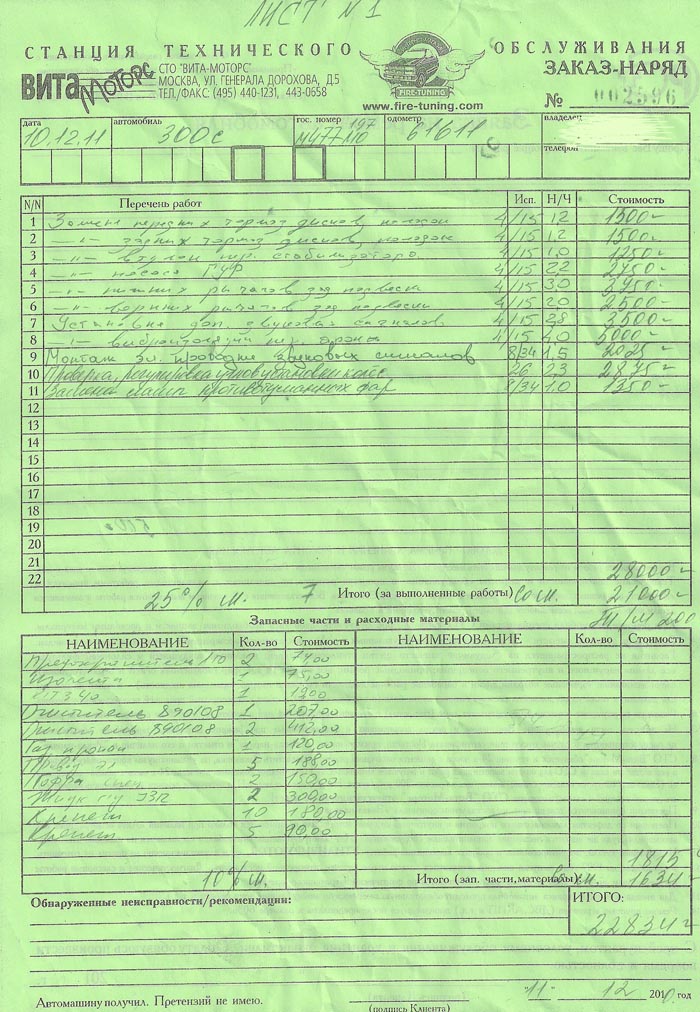 ЛИСТ N 1
СТАНЦИЯ ТЕХНИЧЕСКОГО ОБСЛУЖИВАНИЯ
ВИТА МОТОРС
СТО "ВИТА-МОТОРС"
МОСКВА, УЛ. ГЕНЕРАЛА ДОРОХОВА, Д.5
ТЕЛ./ФАКС: (495) 440-1231, 443-0658
FIRE-TUNING
www.fire-tuning.com
ЗАКАЗ-НАРЯД
№ 002596
дата 10.12.11 автомобиль 300c гос. номер М477МО 197 одометр 61611 владелец
телефон
N/N Перечень работ Исп. Н/Ч Стоимость
1 Замена передних тормоз дисков, колодок 4/15 1.2 1500-
2 -"- задних тормоз дисков, колодок 4/15 1.2 1500-
3 -"- втулок пер. стабилизатора 4/15 1.0 1250-
4 -"- насоса ГУР 4/15 2.2 2750-
5 -"- нижних рычагов зад подвески 4/15 3.0 3750-
6 -"- верхних рычагов зад подвески 4/15 2.0 2500-
7 Установка доп. звуковых сигналов 4/15 2.8 3500-
8 -"- виброизоляции пер. 4/15 4.0 5000-
9 Монтаж эл. проводки звуковых сигналов 8/34 1.5 2025-
10 Проверка, регулировка углов установки колёс 26 2.3 2875-
11 Замена ламп противотуманных фар 8/34 1.0 1350-
12
13
14
15
16
17
18
19
20
21
22 28000-
25% Итого (за выполненные работы) 21000-
Запасные части и расходные материалы
НАИМЕНОВАНИЕ Кол-во Стоимость НАИМЕНОВАНИЕ Кол-во Стоимость
Предохранитель 2 74,00
Изолента 1 75,00
1
Очиститель 890108 1 207,00
Очиститель 890108 2 412,00
Газ пропан 1 120,00
Провод эл 5 188,00
Гофра 2 150,00
2 300,00
Крепеж 10 180,00
Крепеж 5 90,00
1815-
10% Итого (зап. части, материалы): 1634-
Обнаруженные неисправности/рекомендации:
ИТОГО:
22834-
"11" 12 201 год
Автомашину получил. Претензий не имею.
(подпись Клиента)